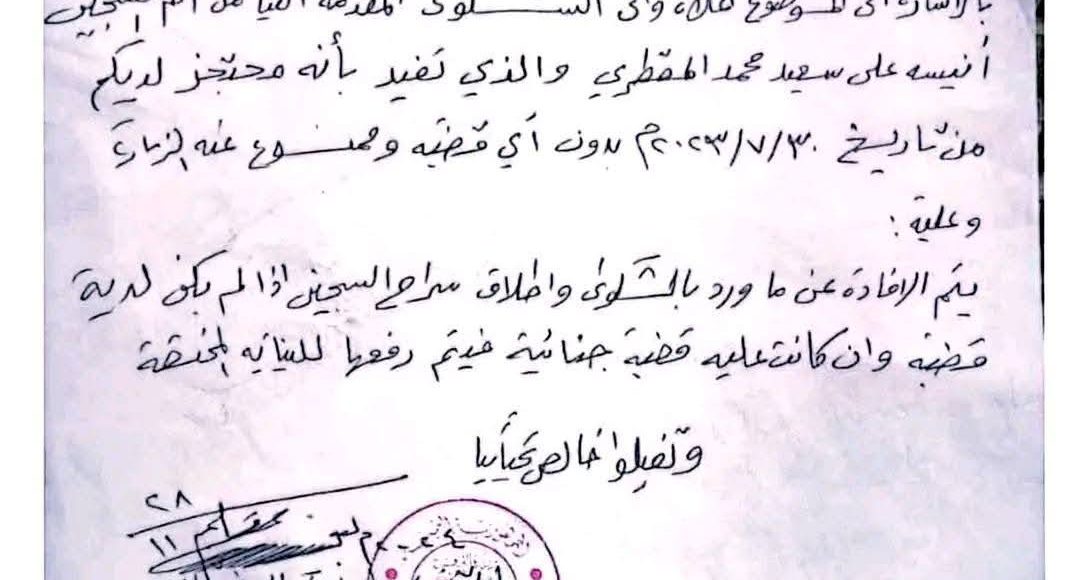 بالإشارة الى الموضوع اعلاه والى الشكوى المقدمة الينا من ام السجين
أنيسه على سعيد محمد المقطري والذي تفيد بأنه محتجز لديكم
من تاريخ ٢٠٢٣/٧/٣٠م بدون أي قضية وممنوع عنه الزيارة
وعلية :
يتم الافادة عن ما ورد بالشكوى واطلاق سراح السجين اذا لم يكن لدية
قضية وان كانت عليه قضية جنائية فيتم رفعها للنيابه المختصة
وتقبلوا خالص تحياتنا
٢٨
١١